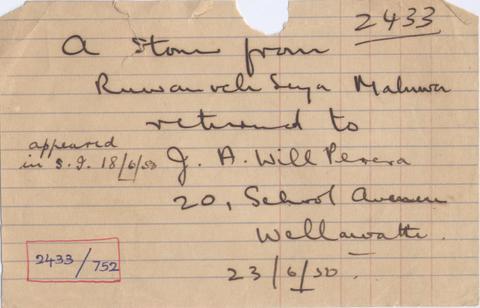 2433
A Stone from
Ruwanveli Seya Maluwa
returned to
appeared
in S.I. 18/6/50
J. A. Will Perera
20, School Avenue
Wellawatte.
23/6/50.
2433/752